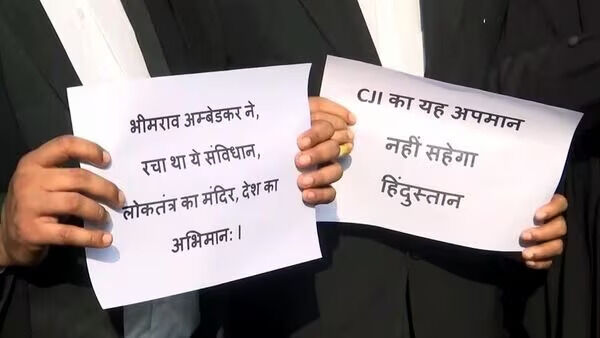 भीमराव अम्बेडकर ने,
रचा था ये संविधान,
लोकतंत्र का मंदिर, देश का
अभिमान:।
CJI का यह अपमान
नहीं सहेगा
हिंदुस्तान